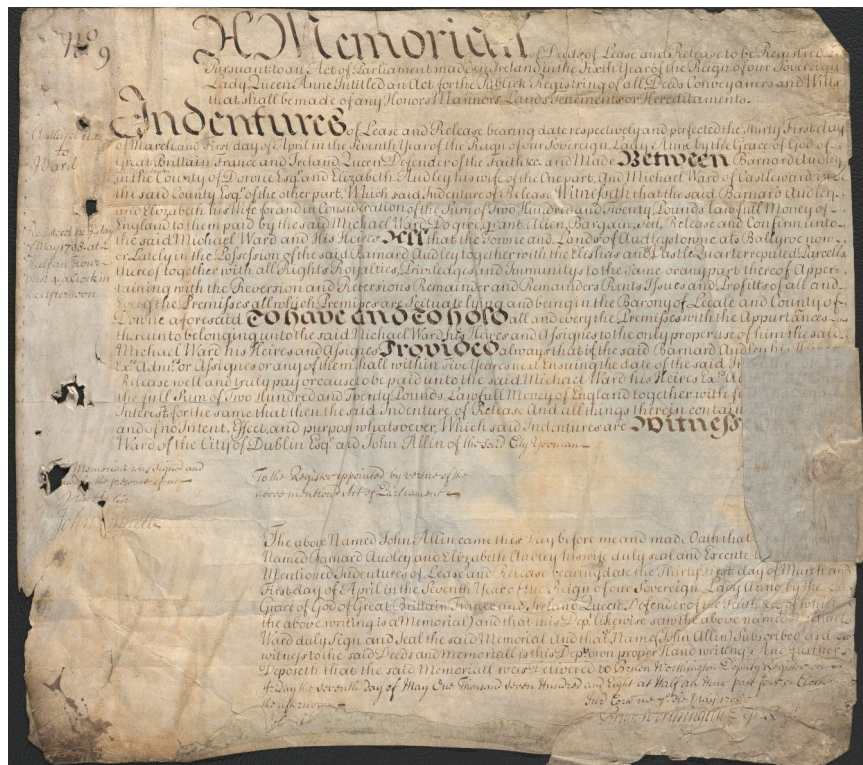 No 9
A Memorial of Deeds of Lease and Release to be Registred
Pursuant to an Act of Parliament made in Ireland in the Sixth Year of the Reign of our Sovereign
Lady Queen Anne Intitled an Act for the Publick Registring of all Deeds Conveyances and Wills
that shall be made of any Honors Mannors Lands Tenements or Hereditaments.
Indentures of Lease and Release bearing date respectively and perfected the Thirty First day
of March and First day of April in the Seventh Year of the Reign of our Sovereign Lady Anne by the Grace of God of
Great Brittain France and Ireland Queen Defender of the Faith &c. and Made Between Barnard Audley
in the County of Downe Esqr. and Elizabeth Audley his wife of the One part, And Michael Ward of Castleward in
the said County Esqr. of the other part, Which said Indenture of Release Witnesseth that the said Barnard Audley
and Elizabeth his Wife for and in Consideration of the Sum of Two Hundred and Twenty Pounds lawfull Money of
England to them paid by the said Michael Ward Do give, grant, Alien, Bargain, Sell, Release and Confirm unto
the said Michael Ward and His Heires All that the Towne and Lands of Audleystowne als Ballyroe now
or Lately in the Possession of the said Barnard Audley together with the and Castle Quarter reputed Parcells
thereof together with all Rights Royalties, Priviledges and Immunitys to the Same or any part thereof Apper
taining with the Reversion and Reversions Remainder and Remainders Rents Issues and Profitts of all and
Every the Premisses all which Premises are Scituate lying and being in the Barony of Lecale and County of
Downe aforesaid To have and To hold all and every the Premisses with the Appurtances
thereunto belonging unto the said Michael Ward his Heires and Assignes to the only proper use of him the said
Michael Ward his Heires and Assignes Provided always that if the said Barnard Audley his Heires
Exrs. Admrs. or Assignes or any of them shall within Five Years next Ensuing the date of the said
Release well and truly pay or cause to be paid unto the said Michael Ward his Heires Exrs.
the full Sum of Two Hundred and Twenty Pounds Lawfull Money of England together with
Interest for the same that then the said Indenture of Release And all things therein contain
and of no Intent, Effect, and purpose whatsoever, Which said Indentures are Witness
Ward of the City of Dublin Esqr. and John Allin of the said City Yeoman
Audley et ux
to
Ward
Registred the 7 day
of May 1708. at
half an hour
past 4 a Clock in
the afternoon
Memoriall was Signed and
in the presence of us
To the Register Appointed by vertue of the
above mentiond Act of Parliament
The above Named John Allin came this Day before me and made Oath that
Named Barnard Audley and Elizabeth Audley his wife duly seal and Execute
Mentioned Indentures of Lease and Release bearing date the Thirty First day of March and
First day of April in the Seventh Year of the Reign of our Sovereign Lady Anne by the
Grace of God of Great Brittain France and Ireland Queen Defender of the Faith &c. (of which
the above writing is a Memorial) and that this Dept. likewise saw the above named Michael
Ward duly Sign and Seal the said Memorial And that Name (John Allin) Subscribed as a
witness to the said Deeds and memoriall is this Depts. own proper Hand writeing And further
Deposeth that the said Memoriall was Delivered to Worthington Deputy Register on
the Seventh day of May One Thousand Seven Hundred and Eight at Half an Hour past four a Clock
the afternoon
Jur. Cora. me 7o. die May 1708
Worthington